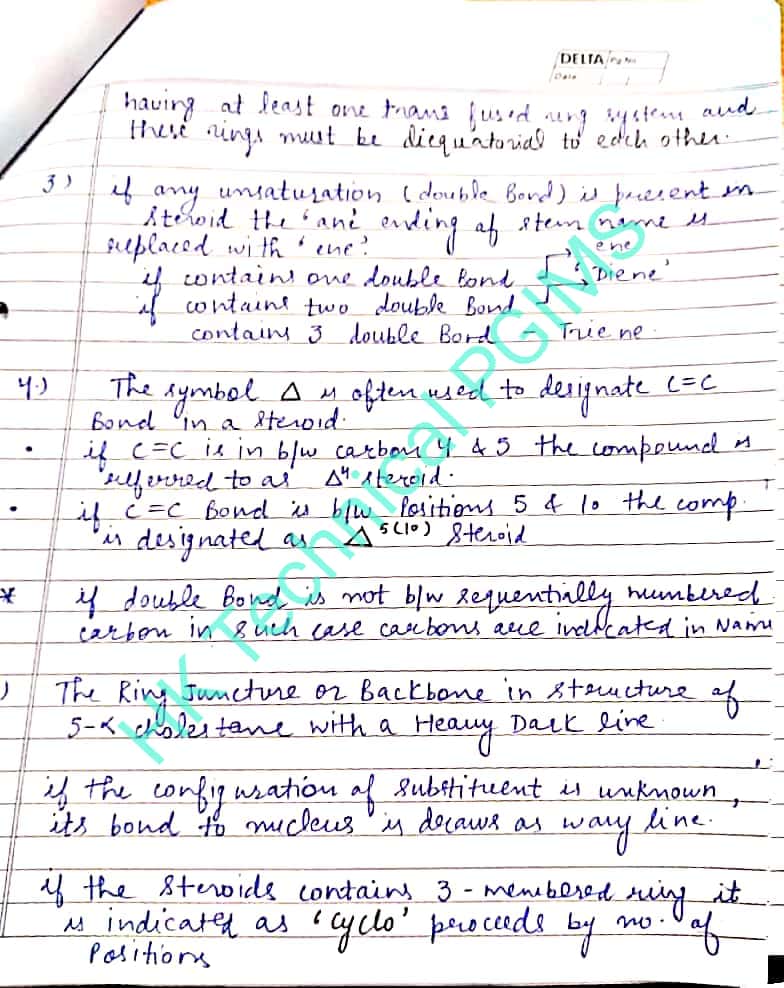 DELTA Pg No
Date
having at least one trans fused ring system and
these rings must be diequatorial to each other.
3) if any unsaturation (double Bond) is present in
steroid the 'ane' ending of stem name is
replaced with 'ene'.
if contains one double Bond → ene
if contains two double Bond → 'Diene'
contains 3 double Bord - Triene.
4.) The symbol Δ is often used to designate C=C
Bond in a steroid.
• if C=C is in b/w carbon 4 & 5 the compound is
referred to as Δ⁴ steroid.
• if C=C Bond is b/w Positions 5 & 10 the comp.
is designated as Δ⁵⁽¹⁰⁾ Steroid
* if double Bond is not b/w sequentially numbered
carbon in such case carbons are indicated in Name
) The Ring Juncture or Backbone in structure of
5-α cholestane with a Heavy Dark line.
if the configuration of substituent is unknown,
its bond to nucleus is draws as wavy line.
if the Steroids contains 3-membered ring it
is indicated as 'cyclo' proceeds by no. of
Positions
HK Technical PGIMS